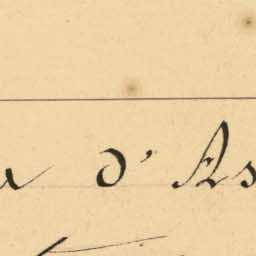 a d'As